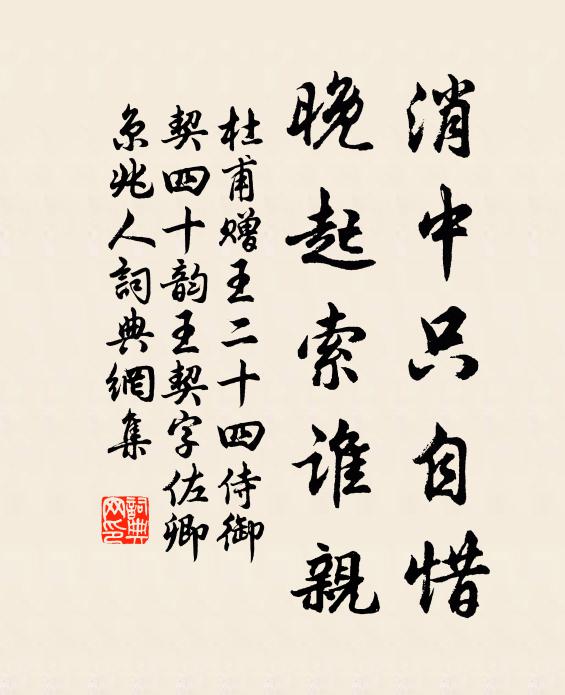 消中只自惜
晚起索谁親
杜甫赠王二十四侍御
契四十韵王契字佐卿
京兆人詞典網集
詞典网印